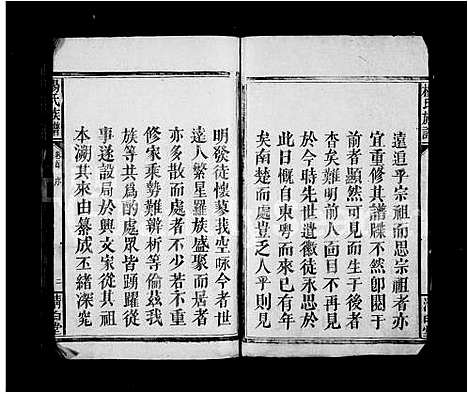 楊氏族譜
遠追乎宗祖而思宗祖者亦
宜重修其譜牒不然卽閱于
前者顯然可見而生于後者
杳矣難明前人面目不再見
於今時先世遺徽徒永思於
此日慨自東粵而來已有於
矣南楚而處豈乏人乎則見
明發徒懷蓼莪空咏今者世
遠人繁星羅族盛聚而居者
亦多散而處者不少若不重
修家乘勢難辨析等倫茲我
族等共爲酌處眾皆踴躍從
事遂設局於興文家從其大
本溯其來由纂成丕緒深究
楊氏族譜
序
三
清白堂